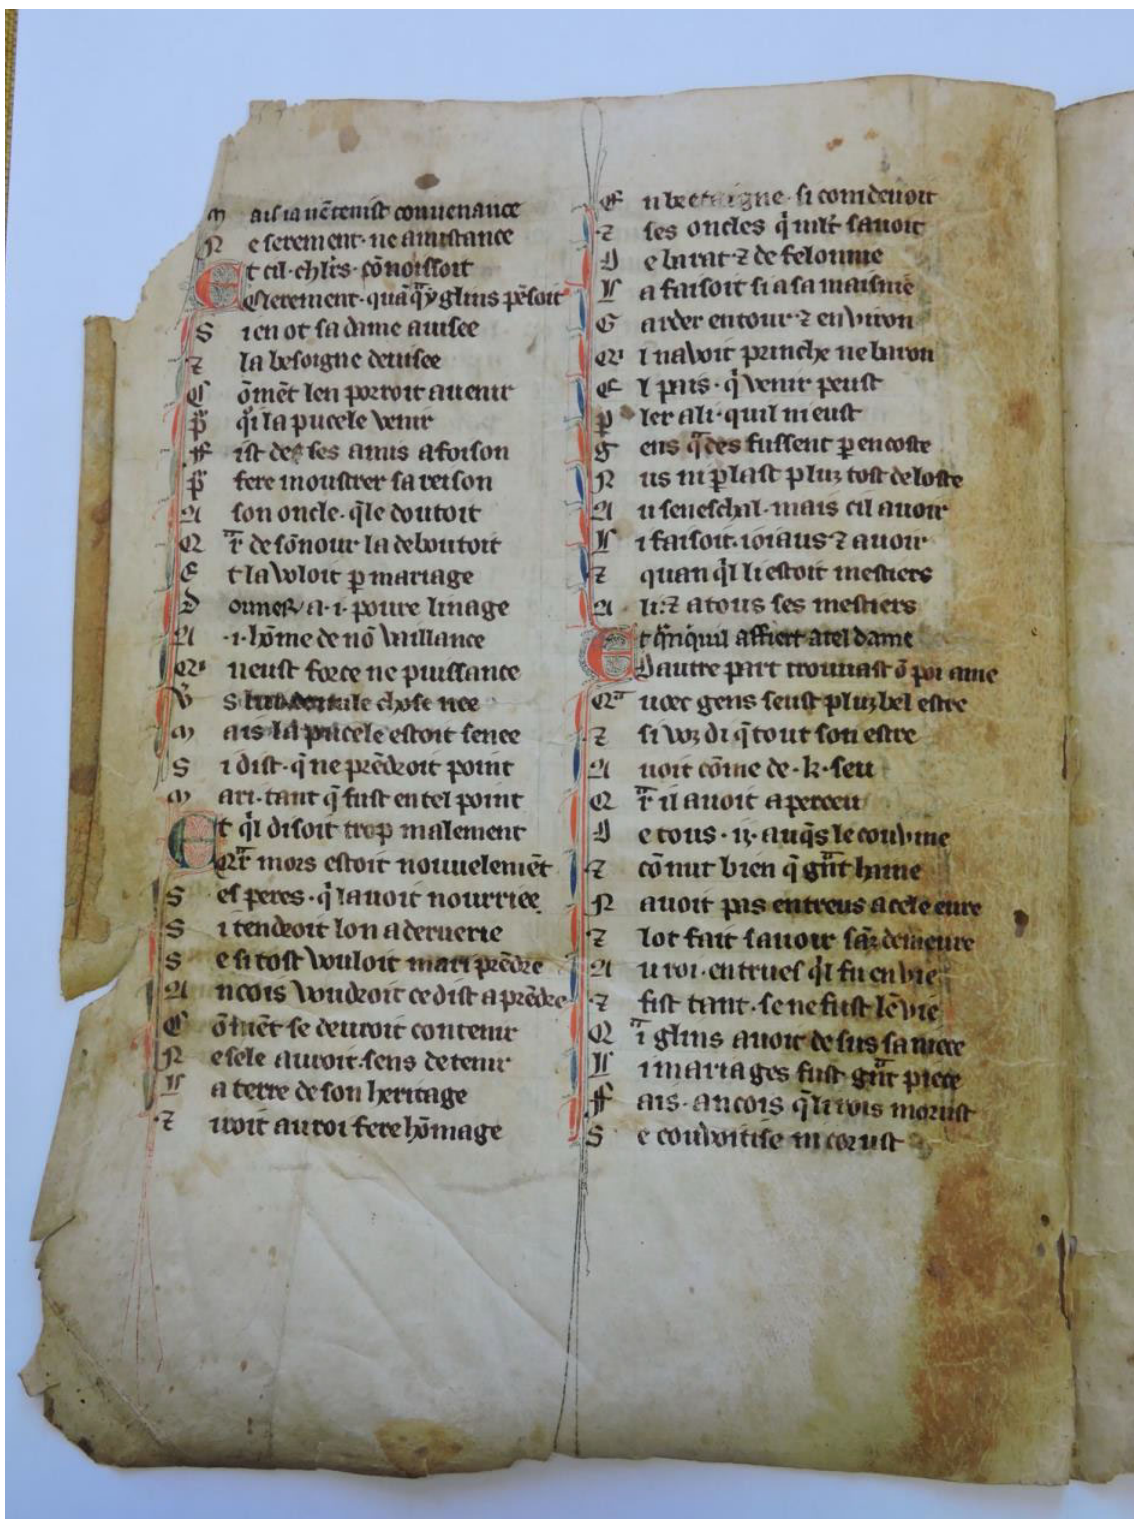 M ais ia nẽ tenist conuenance
N e serement · ne amistance
Et cil · chl'rs · cõnoissoit
Clerement · quãq̃ yglins pẽsoit
S i en ot sa dame auisee
⁊ la besoigne deuisee
C õmẽt len porroit auenir
P̃ q̃i la pucele venir
F ist de ses amis a foison
P̃ fere moustrer sa reison
A son oncle · q̃le doutoit
Q̃r de sõnour la deboutoit
E t la voloit ꝑ mariage
D onner a · i · poure linage
A · i · hõme de nõ vaillance
Q' neust force ne puissance
V s chose nee
M ais la pucele estoit senee
S i dist · q̃ ne prẽdroit point
M ari · tant q̃ fust en tel point
Et q̃l disoit trop malement
Q̃r mors estoit nouuelemẽt
S es peres · q̃ lauoit nourriee
S i tendroit lon a deruerie
S e si tost vouloit mari prẽdre
A ncois voudroit ce dist aprẽdre
C õmẽt se deuroit contenir
N e sele auroit sens de tenir
L a terre de son heritage
⁊ uoit au roi fere hõmage
E n bretaigne · si com deuoit
⁊ ses oncles q̃ mlt' sauoit
D e barat ⁊ de felonnie
L a faisoit si a sa maisnie
G arder entour ⁊ enuiron
Q' l nauoit prinche ne baron
E l pais · q̃ venir peust
P ler a li · quil ni eust
G ens q̃ des fussent ꝑ encoste
N us ni ꝑlast pluz tost de loste
A u seneschal · mais cil auoir
L i faisoit · ioiaus ⁊ auoir
⁊ quan q̃l li estoit mestiers
A li · ⁊ a tous ses mestiers
Et q̃nquil affiert a tel dame
Dautre part trouuast õ poi ame
Q̃ uoec gens seust pluz bel estre
⁊ si voz di q̃ tout son estre
A uoit cõme de · k · seu
Q̃r il auoit aperceu
D e tous · ii · auq̃s le couuine
⁊ cõnut bien q̃ gãt hine
N auoit pas entreus a cele eure
⁊ lot fait sauoir sãz demeure
A u roi · entrues q̃l fu en vie
⁊ fist tant · se ne fust lẽuie
Q̃ iglins auoit desus sa niece
L i mariages fust gãt piece
F ais · ancois q̃ li rois morust
S e couuoitise ni corust